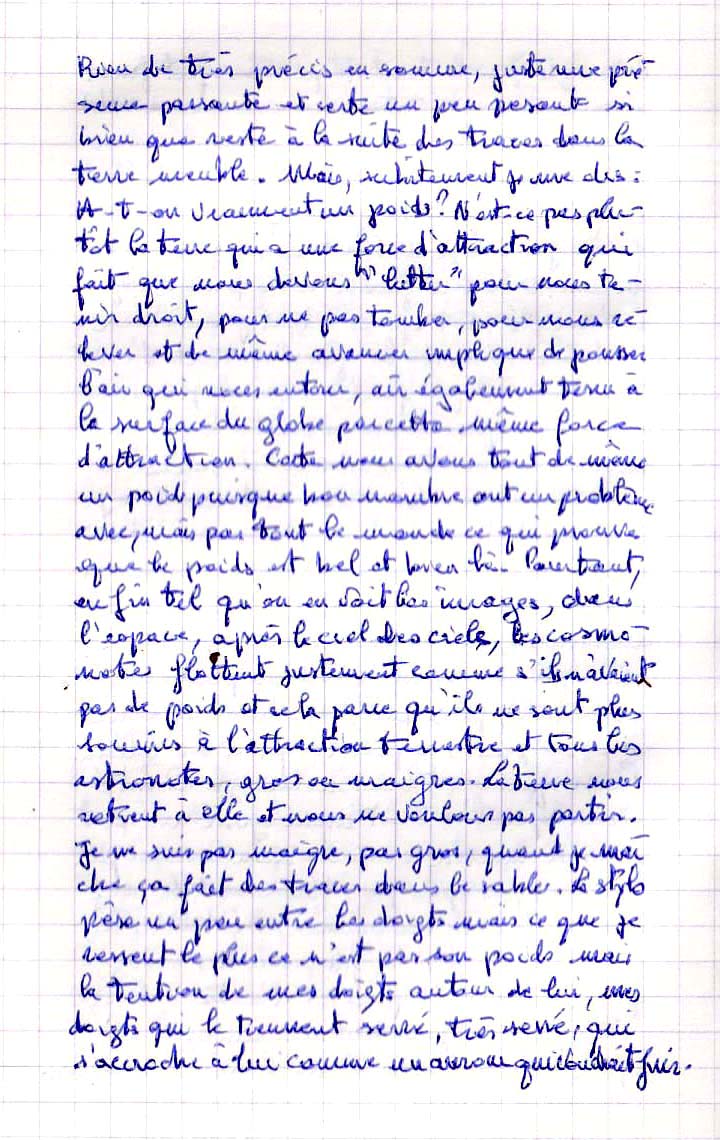 Rien de très précis en somme, juste une pré-
sence passante et certe un peu pesante si
bien que reste à la suite des traces dans la
terre meuble. Mais, subitement je me dis :
A-t-on vraiment un poids? N'est-ce pas plu-
tôt la terre qui a une force d'attraction qui
fait que nous devons "lutter" pour nous te-
nir droit, pour ne pas tomber, pour nous re-
lever et de même avancer implique de pousser
l'air qui nous entoure, air également tenu à
la surface du globe par cette même force
d'attraction. Certe nous avons tout de même
un poid puisque bon nombre ont un problème
avec, mais pas tout le monde ce qui prouve
que le poids est bel et bien là. Pourtant,
en fin tel qu'on en voit les images, dans
l'espace, après le ciel des ciels, les cosmo-
notes flottent justement comme s'ils n'avaient
pas de poids et cela parce qu'ils ne sont plus
soumis à l'attraction terrestre et tous les
astronotes, gros ou maigres. La terre nous
retient à elle et nous ne voulons pas partir.
Je ne suis pas maigre, pas gros, quand je mar
che ça fait des traces dans le sable. Le stylo
pèse un peu entre les doigts mais ce que je
ressent le plus ce n'est pas son poids mais
la tention de mes doigts autour de lui, mes
doigts qui le tiennent serré, très serré, qui
s'accroche à lui comme un qui voudrait fuir.